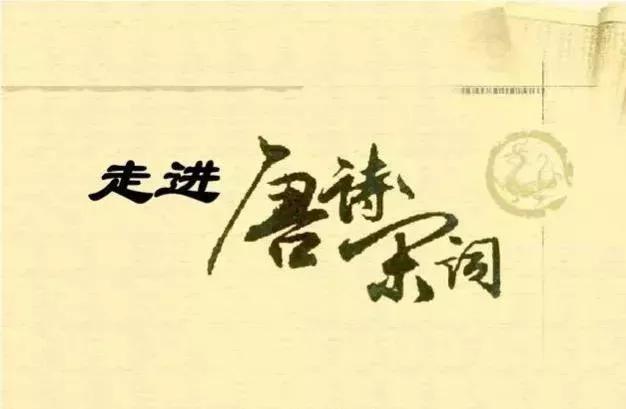 走进唐诗宋词